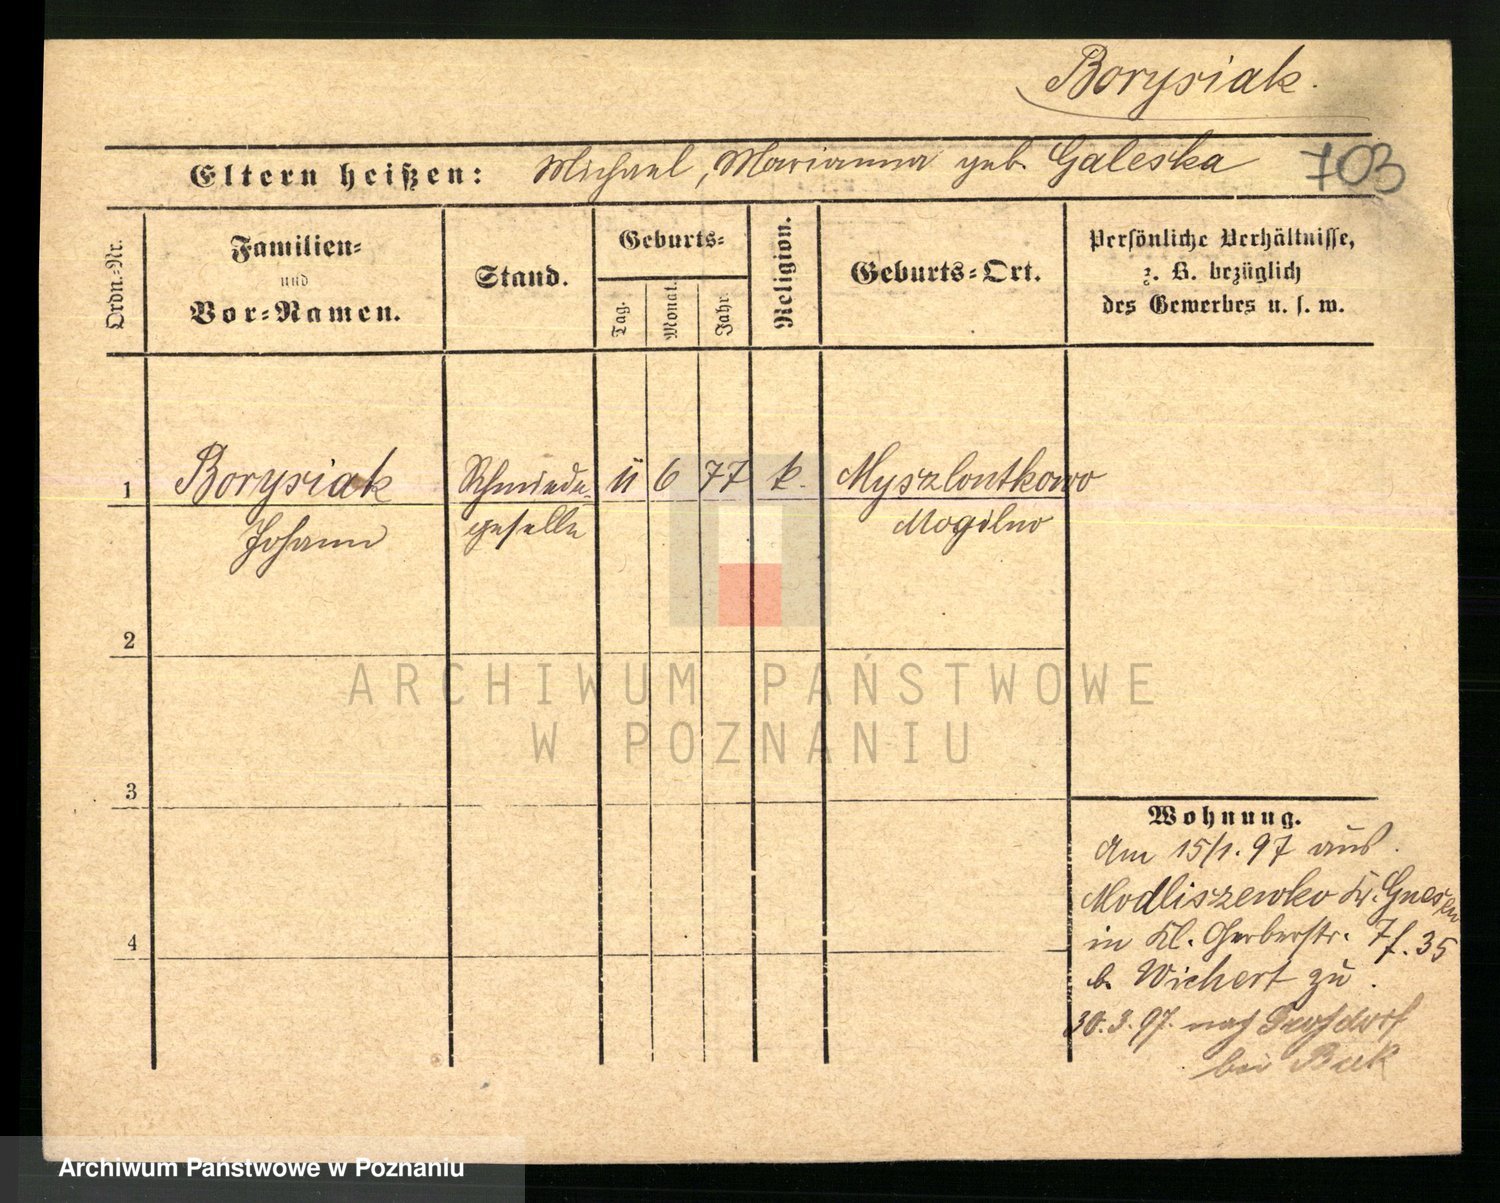 Borysiak.
Eltern heißen: Michael, Marianna geb. Galeska 703
Ordn.-Nr.
Familien-
und
Vor-Namen.
Stand.
Geburts-
Tag.
Monat.
Jahr.
Religion.
Geburts-Ort.
Persönliche Verhältnisse,
z. B. bezüglich
des Gewerbes u. s. w.
1 Borysiak Schmiede- 11 6 77 k. Myszlontkowo
Johann geselle Mogilno
2
3
4
Wohnung.
Am 15/1. 97 aus
Modliszewko Kr. Gnesen
in Kl. Gerberstr. 7 f. 35
b. Wichert zu.
30.3.97. nach
bei Buk
ARCHIWUM PAŃSTWOWE
W POZNANIU
Archiwum Państwowe w Poznaniu